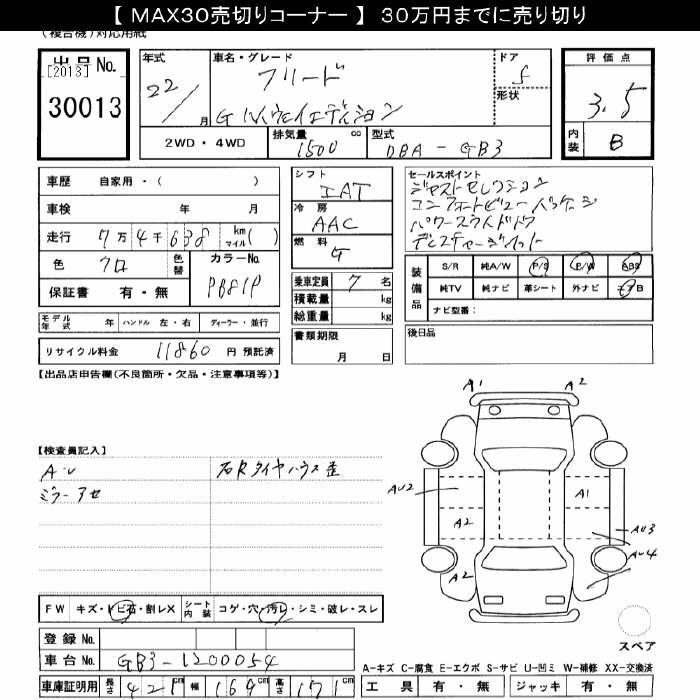 【 MAX30売切りコーナー 】 30万円までに売り切り
(複合機)対応用紙
出品No.
[2013]
30013
年式 22/ 月
車名・グレード フリード
G ハイウェイエディション
ドア 5
形状
2WD・4WD
排気量 1500 cc
型式 DBA - GB3
評価点 3.5
内装 B
車歴 自家用・( )
車検 年 月
走行 7万4千638 km マイル( )
色 クロ 色替
カラーNo. PB81P
保証書 有・無
モデル年式 年 ハンドル 左・右 ディーラー・並行
リサイクル料金 11860 円 預託済
シフト IAT
冷房 AAC
燃料 G
乗車定員 7 名
積載量 kg
総重量 kg
書類期限
月 日
セールスポイント
ジャストセレクション
コンフォートビューパッケージ
パワースライドドア
装備品
S/R 純A/W P/S P/W ABS
純TV 純ナビ 革シート 外ナビ エアB
ナビ型番:
後日品
【出品店申告欄(不良箇所・欠品・注意事項等)】
【検査員記入】
A・U
ミラーアセ
右Rタイヤハウス歪
A1 A2
AU2 A1
A2 AU3
AU4
A2
スペア
FW キズ・トビ石・割レX シート内装 コゲ・穴・汚レ・シミ・破レ・スレ
登録No.
車台No. GB3-1200054
車庫証明用 長さ 421cm 幅 169cm 高さ 171cm
A-キズ C-腐食 E-エクボ S-サビ U-凹ミ W-補修 XX-交換済
工具 有・無 ジャッキ 有・無